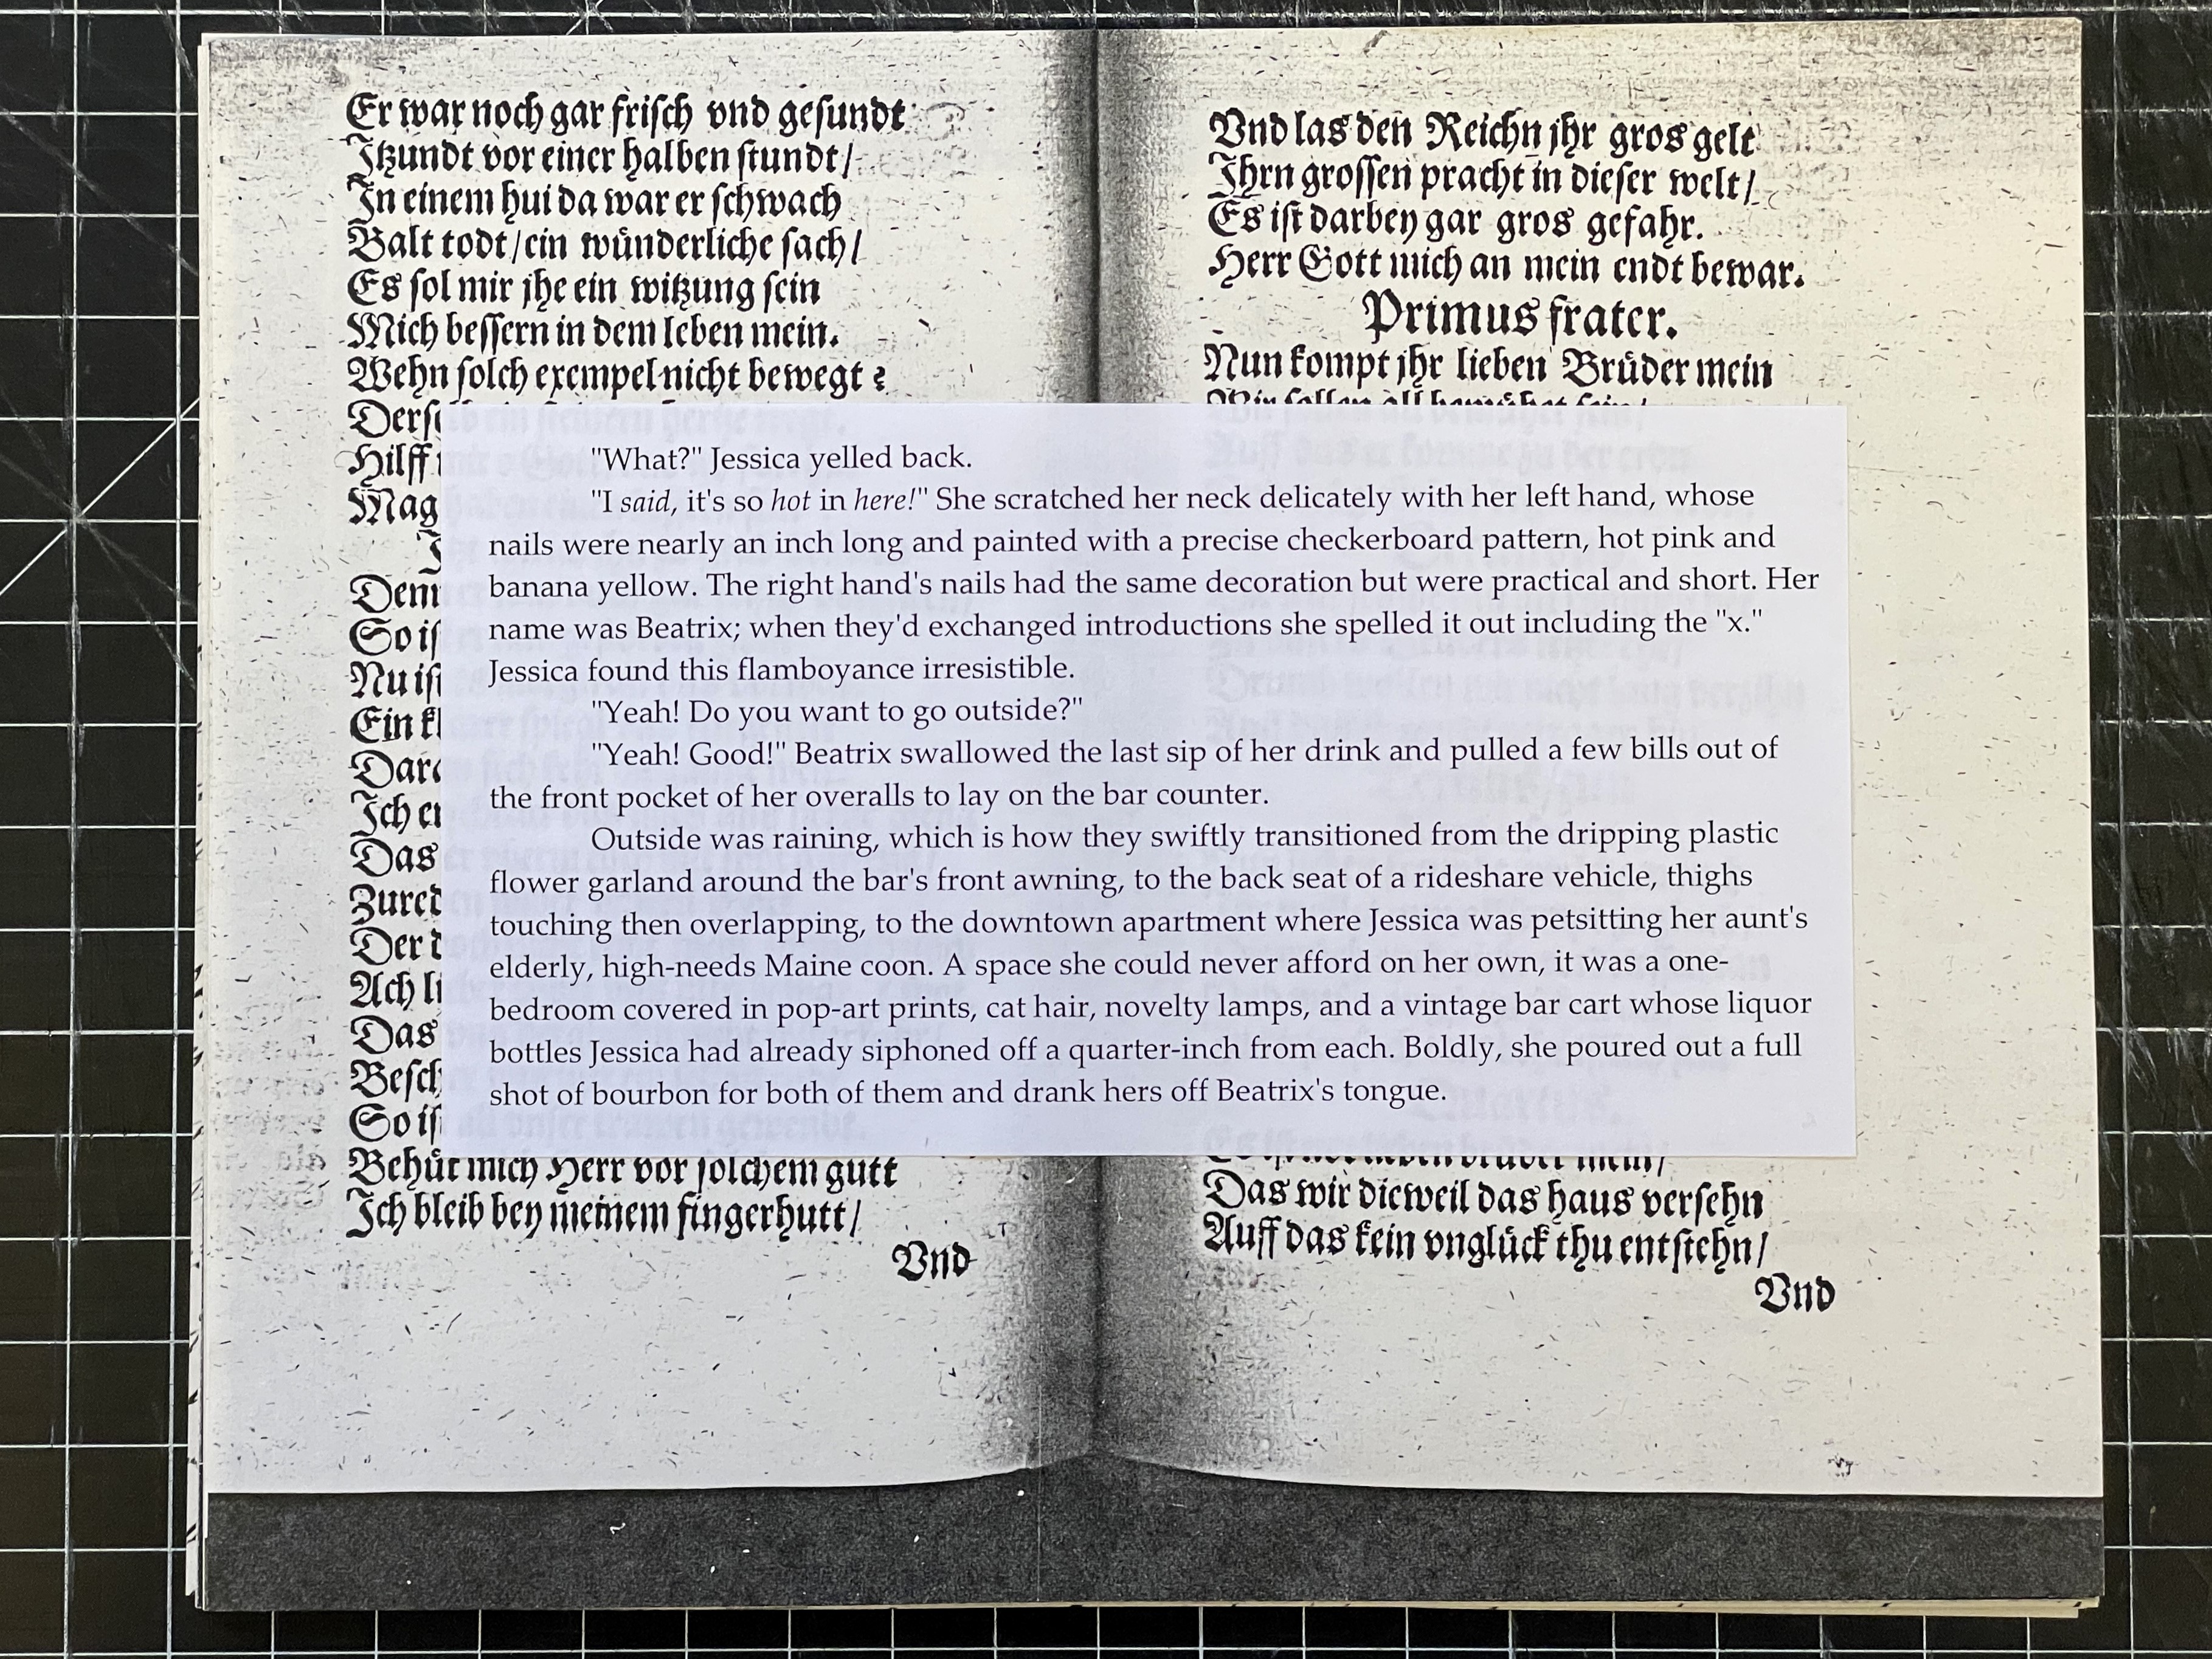 Er war noch gar frisch vnd gesundt
Itzundt vor einer halben stundt/
In einem hui da war er schwach
Balt todt/ein wůnderliche sach/
Es sol mir jhe ein witzung sein
Mich bessern in dem leben mein.
Wehn solch exempel nicht bewegt?
Hilff
Mag
So
Nu
Ein
Ich
Das
Der
Ach
Das
So
Behůt mich Herr vor solchem gutt
Ich bleib bey meinem fingerhutt/
Vnd
Vnd las den Reichn jhr gros gelt
Ihrn grossen pracht in dieser welt/
Es ist darbey gar gros gefahr.
Herr Gott mich an mein endt bewar.
Primus frater.
Nun kompt jhr lieben Brůder mein
"What?" Jessica yelled back.
"I said, it's so hot in here!" She scratched her neck delicately with her left hand, whose
nails were nearly an inch long and painted with a precise checkerboard pattern, hot pink and
banana yellow. The right hand's nails had the same decoration but were practical and short. Her
name was Beatrix; when they'd exchanged introductions she spelled it out including the "x."
Jessica found this flamboyance irresistible.
"Yeah! Do you want to go outside?"
"Yeah! Good!" Beatrix swallowed the last sip of her drink and pulled a few bills out of
the front pocket of her overalls to lay on the bar counter.
Outside was raining, which is how they swiftly transitioned from the dripping plastic
flower garland around the bar's front awning, to the back seat of a rideshare vehicle, thighs
touching then overlapping, to the downtown apartment where Jessica was petsitting her aunt's
elderly, high-needs Maine coon. A space she could never afford on her own, it was a one-
bedroom covered in pop-art prints, cat hair, novelty lamps, and a vintage bar cart whose liquor
bottles Jessica had already siphoned off a quarter-inch from each. Boldly, she poured out a full
shot of bourbon for both of them and drank hers off Beatrix's tongue.
Das wir dieweil das haus versehn
Auff das kein vnglůck thu entstehn/
Vnd